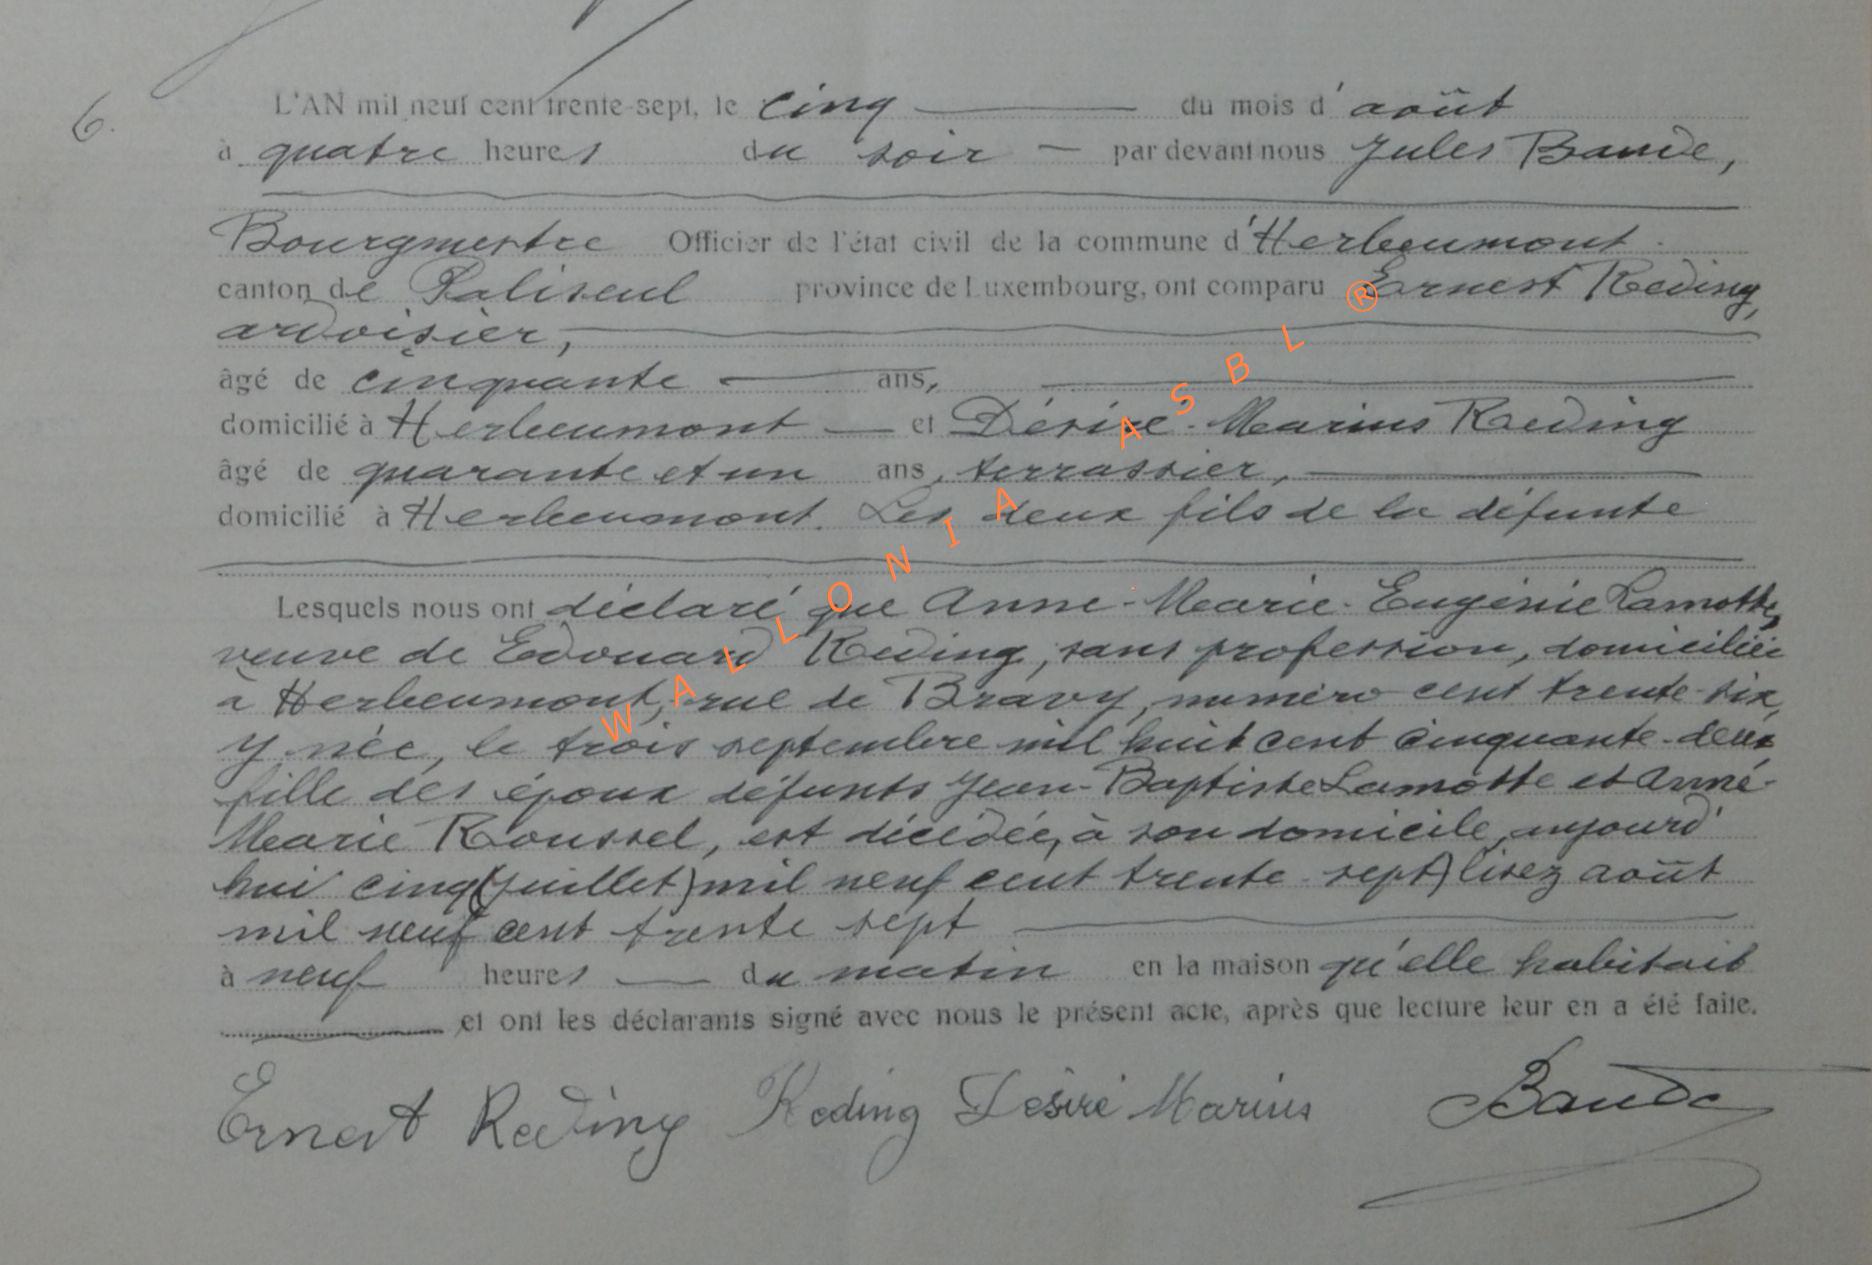 6.
L'AN mil neuf cent trente-sept, le cinq du mois d'août
à quatre heures du soir — par devant nous Jules Baude,
Bourgmestre Officier de l'état civil de la commune d'Herbeumont
canton de Paliseul province de Luxembourg, ont comparu Ernest Reding,
ardoisier,
âgé de cinquante ans,
domicilié à Herbeumont — et Désiré-Marius Reding
âgé de quarante et un ans, terrassier,
domicilié à Herbeumont. Les deux fils de la défunte
Lesquels nous ont déclaré que Anne-Marie-Eugénie Lamotte,
veuve de Edouard Reding, sans profession, domiciliée
à Herbeumont, rue de Bravy, numéro cent trente-six,
y née, le trois septembre mil huit cent cinquante-deux
fille des époux défunts Jean-Baptiste Lamotte et Anne-
Marie Roussel, est décédée, à son domicile, aujourd'
hui cinq (juillet) mil neuf cent trente-sept) lisez août
mil neuf cent trente sept
à neuf heures — du matin en la maison qu'elle habitait
et ont les déclarants signé avec nous le présent acte, après que lecture leur en a été faite.
Ernest Reding Reding Désiré Marius Baude
WALLONIA ASBL ®